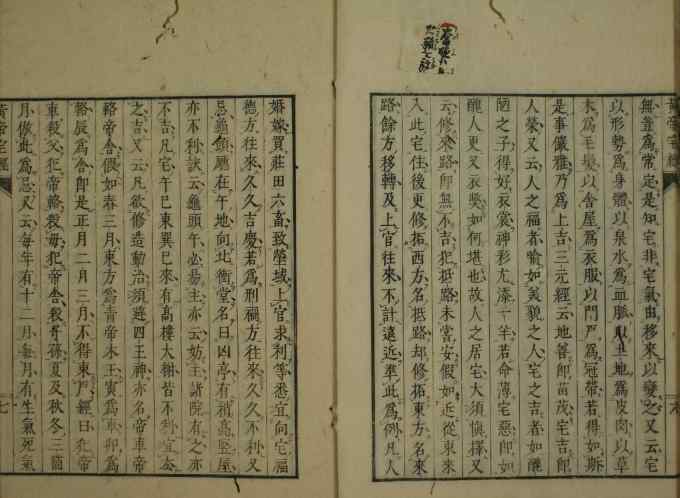 無宜爲常定是知宅非宅氣由移來以變之又云宅
以形勢爲身體以泉水爲血脉以土地爲皮肉以草
木爲毛髮以舍屋爲衣服以門戸爲冠帶若得如斯
是事儼雅乃爲上吉三元經云地善即苗茂宅吉即
人榮又云人之福者喻如美貌之人宅之吉者如醜
陋之子得好衣裳神彩尤添一半若命薄宅惡即如
醜人更又衣弊如何堪也故人之居宅大須慎擇又
云修來路即無不吉犯抵路未嘗安假如近從東來
入此宅住後更修拓西方名抵路却修拓東方名來
路餘方移轉及上官往來不計遠近準此爲例凡人
婚嫁買莊田六畜致塋域上官求利等悉宜向宅福
德方往來久久吉慶若爲刑禍方往來久久不利又
忌龜頭廳在午地向北衝堂名曰凶亭有稍高竪屋
亦不利訣云龜頭午必易主亦云妨主諸院有之亦
不吉凡宅午巳東巽巳來有高樓大樹皆不利宜去
之吉又云凡欲修造動治須避四王神亦名帝車帝
輅帝舍假如春三月東方爲青帝木王寅爲車卯爲
輅辰爲舍即是正月二月三月不得東戸經曰犯帝
車殺父犯帝輅殺母犯帝舍殺子孫夏及秋冬三箇
月倣此爲忌又云每年有十二月每月有生氣死氣
黃帝宅經
七